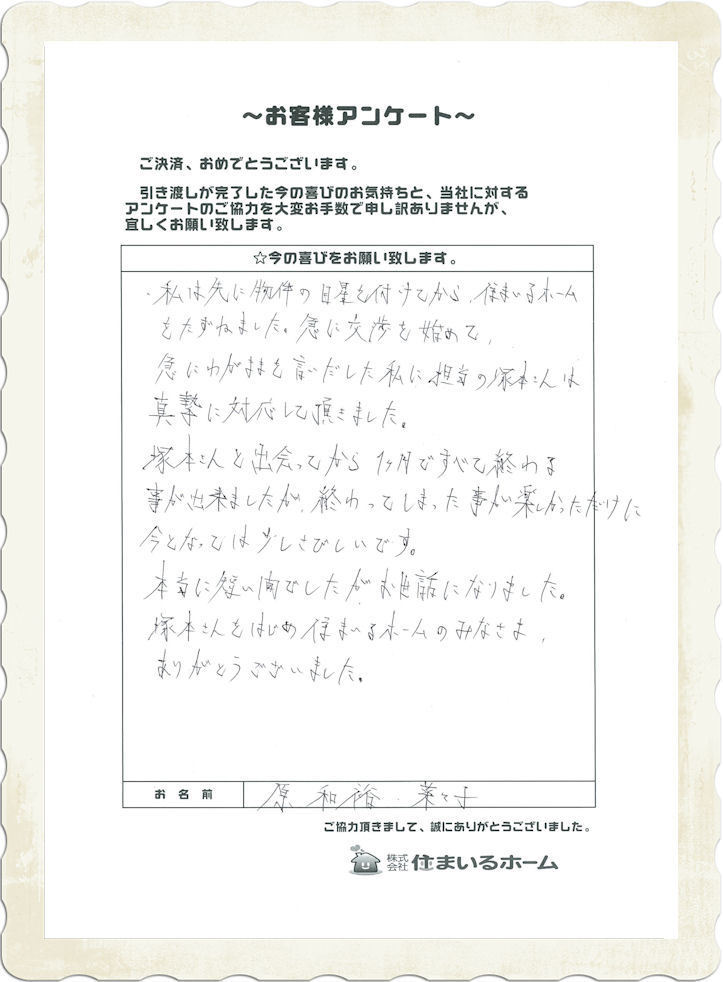 ～お客様アンケート～
ご決済、おめでとうございます。
引き渡しが完了した今の喜びのお気持ちと、当社に対する
アンケートのご協力を大変お手数で申し訳ありませんが、
宜しくお願い致します。
☆今の喜びをお願い致します。
・私は先に物件の目星を付けてから、住まいるホーム
をたずねました。急に交渉を始めて、
急にわがままを言いだした私に担当の塚本さんは
真摯に対応して頂きました。
塚本さんと出会ってから1ヶ月ですべて終わる
事が出来ましたが、終わってしまった事が楽しかっただけに
今となっては少しさびしいです。
本当に短い間でしたがお世話になりました。
塚本さんをはじめ住まいるホームのみなさま、
ありがとうございました。
お名前
原 和裕・菜々子
ご協力頂きまして、誠にありがとうございました。
株式会社 住まいるホーム